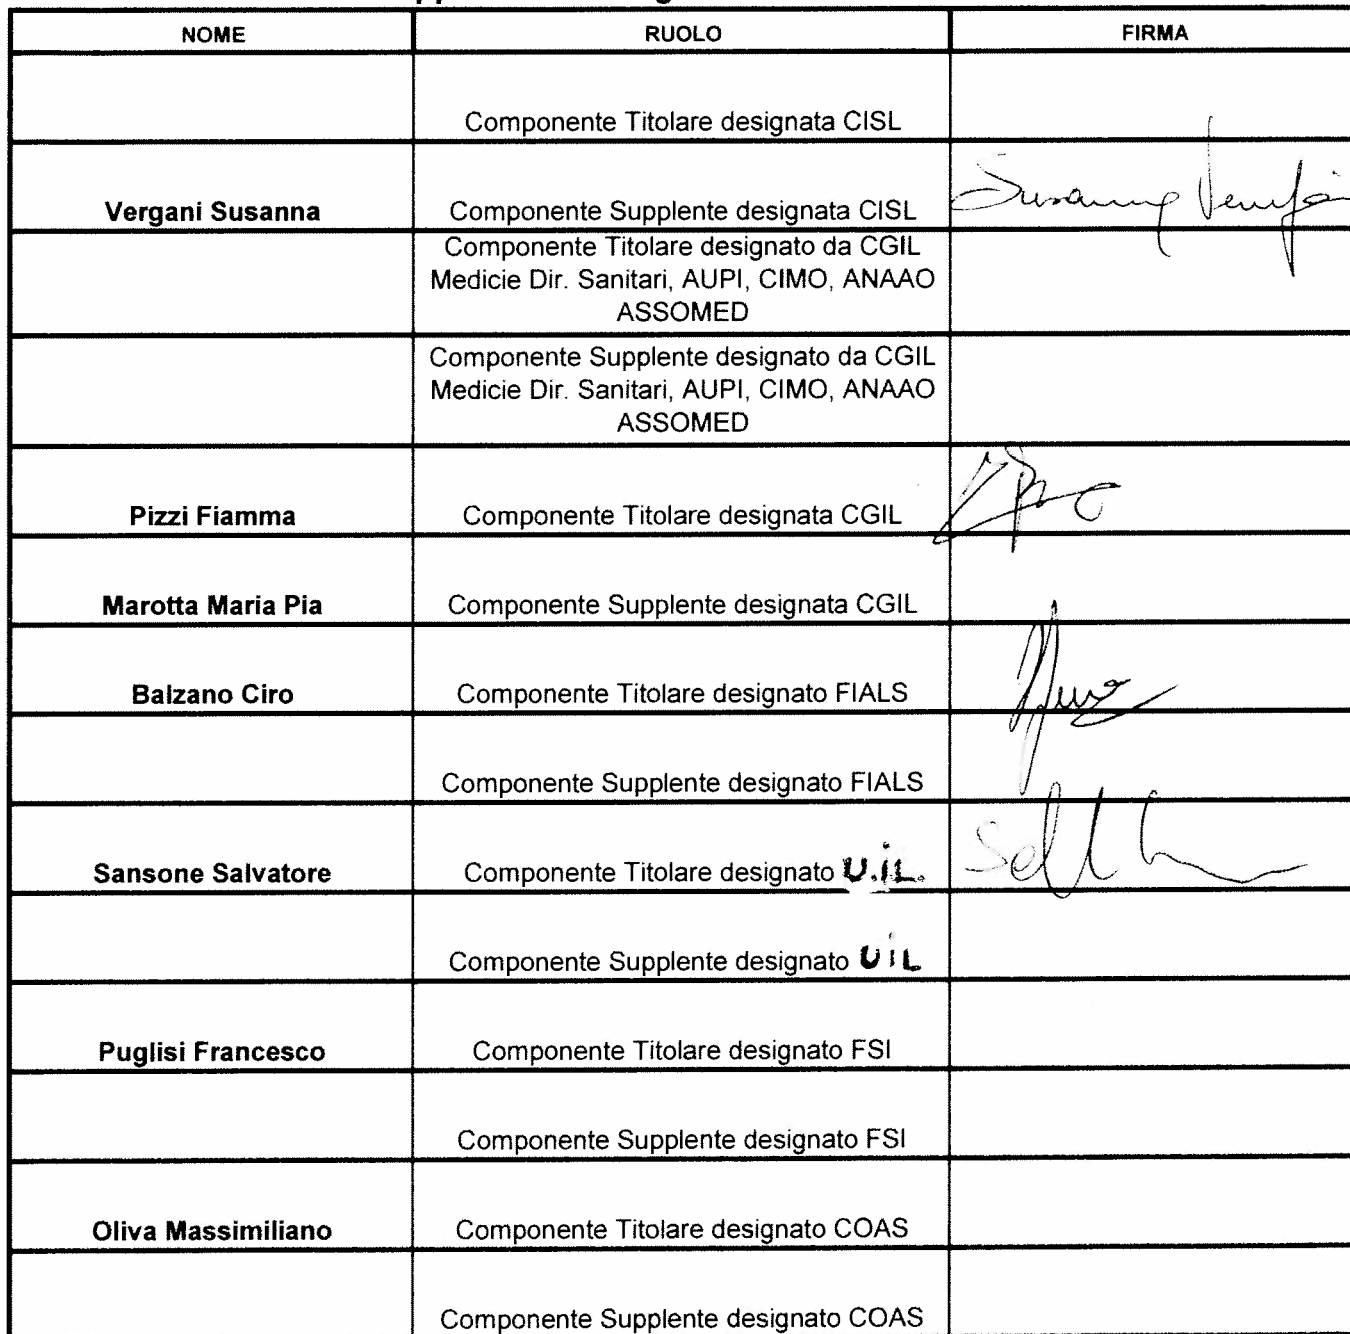 NOME RUOLO FIRMA
Componente Titolare designata CISL
Vergani Susanna Componente Supplente designata CISL Susanna Vergani
Componente Titolare designato da CGIL
Medicie Dir. Sanitari, AUPI, CIMO, ANAAO
ASSOMED
Componente Supplente designato da CGIL
Medicie Dir. Sanitari, AUPI, CIMO, ANAAO
ASSOMED
Pizzi Fiamma Componente Titolare designata CGIL
Marotta Maria Pia Componente Supplente designata CGIL
Balzano Ciro Componente Titolare designato FIALS
Componente Supplente designato FIALS
Sansone Salvatore Componente Titolare designato U.iL.
Componente Supplente designato UiL
Puglisi Francesco Componente Titolare designato FSI
Componente Supplente designato FSI
Oliva Massimiliano Componente Titolare designato COAS
Componente Supplente designato COAS